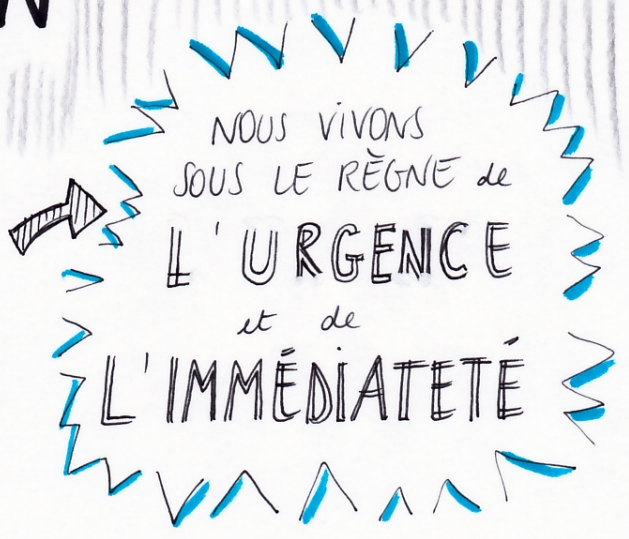 NOUS ViVONS
SOUS LE RÈGNE de
L'URGENCE
et de
L'IMMÉDiATETÉ